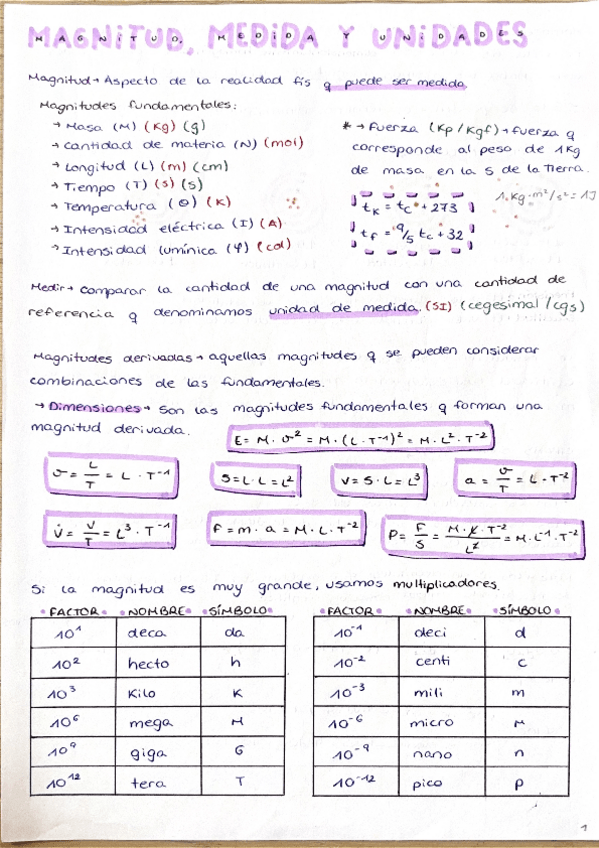 MAGNITUD, MEDIDA Y UNIDADES
Magnitud → Aspecto de la realidad fís q puede ser medida.
Magnitudes fundamentales:
→ Masa (M) (Kg) (g)
→ Cantidad de materia (N) (mol)
→ Longitud (L) (m) (cm)
→ Tiempo (T) (s) (s)
→ Temperatura (Θ) (K)
→ Intensidad eléctrica (I) (A)
→ Intensidad lumínica (φ) (cd)
* → Fuerza (Kp / Kgf) → fuerza q
corresponde al peso de 1Kg
de masa en la S de la Tierra.
1 Kg · m²/s² = 1J
tK = tC + 273
tF = 9/5 tC + 32
Medir → comparar la cantidad de una magnitud con una cantidad de
referencia q denominamos unidad de medida. (SI) (cegesimal / cgs)
Magnitudes derivadas → aquellas magnitudes q se pueden considerar
combinaciones de las fundamentales.
→ Dimensiones → Son las magnitudes fundamentales q forman una
magnitud derivada.
E = M · v² = M · (L · T⁻¹)² = M · L² · T⁻²
v = L/T = L · T⁻¹
S = L · L = L²
V = S · L = L³
a = v/T = L · T⁻²
V̇ = V/T = L³ · T⁻¹
F = m · a = M · L · T⁻²
P = F/S = M · L · T⁻²/L² = M · L⁻¹ · T⁻²
Si la magnitud es muy grande, usamos multiplicadores.
• FACTOR • NOMBRE • SÍMBOLO •
10¹ deca da
10² hecto h
10³ Kilo K
10⁶ mega M
10⁹ giga G
10¹² tera T
• FACTOR • NOMBRE • SÍMBOLO •
10⁻¹ deci d
10⁻² centi c
10⁻³ mili m
10⁻⁶ micro μ
10⁻⁹ nano n
10⁻¹² pico p
1